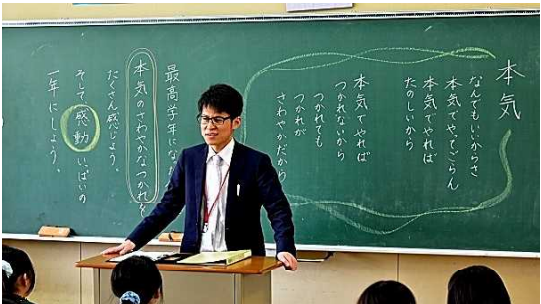 本気
なんでもいいからさ
本気でやってごらん
本気でやれば
たのしいから
本気でやれば
つかれないから
つかれても
つかれが
さわやかだから
最高学年にな
本気のさわやかなつかれを
たくさん感じよう。
そして感動いっぱいの
一年にしよう。